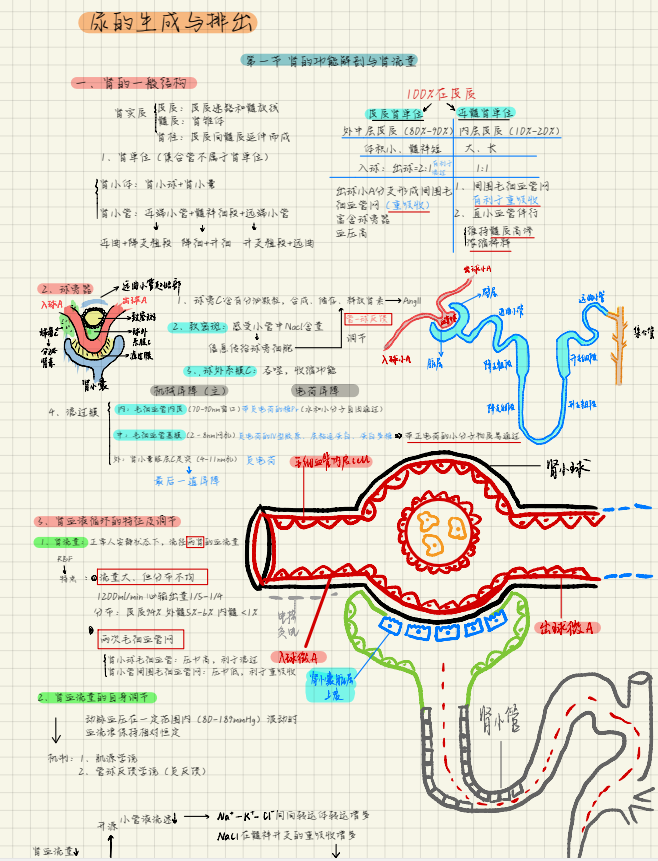 尿的生成与排出
第一节 肾的功能解剖与肾流量
一、肾的一般结构
肾实质
皮质：皮质迷路和髓放线
髓质：肾锥体
肾柱：皮质向髓质延伸而成
1、肾单位（集合管不属于肾单位）
肾小体：肾小球+肾小囊
肾小管：近端小管+髓袢细段+远端小管
近曲+降支粗段 降细+升细 升支粗段+远曲
100%在皮质
皮质肾单位
近髓肾单位
外中层皮质（80%-90%）
内层皮质（10%-20%）
体积小、髓袢短
大、长
入球：出球=2:1
1:1
出球小A分支形成周围毛
细血管网（重吸收）
富含球旁器
血压高
1、周围毛细血管网
有利于重吸收
2、直小血管伴行
维持髓质高渗
浓缩稀释
2、球旁器
远曲小管起始部
入球A
出球A
致密斑
球外
系膜C
球旁C
分泌
肾素
滤过膜
肾小囊
1、球旁C含有分泌颗粒，合成、储存、释放肾素→AngⅡ
2、致密斑：感受小管中NaCl含量
信息传给球旁细胞
管-球反馈
调节
3、球外系膜C：吞噬，收缩功能
出球小A
入球小A
近曲小管
远曲小管
集合管
降支粗段
升支粗段
降支细段
升支细段
机械屏障（主）
电荷屏障
4、滤过膜
内：毛细血管内皮（70-90nm窗口）带负电荷的糖Pr（水和小分子自由通过）
中：毛细血管基膜（2-8nm网孔）
带正电荷的小分子物质易通过
外：肾小囊脏层C足突（4-11nm孔） 负电荷
最后一道屏障
毛细血管内皮cell
肾小球
5、肾血液循环的特征及调节
1、肾流量：正常人安静状态下，流经两肾的血流量
RBF
特点：
① 流量大、但分布不均
1200ml/min 心输出量1/5-1/4
分布：皮质94% 外髓5%-6% 内髓<1%
两次毛细血管网
肾小球毛细血管：压力高，利于滤过
肾小管周围毛细血管网：压力低，利于重吸收
入球微A
出球微A
肾小囊脏层
上皮
肾小管
2、肾血流量的自身调节
动脉血压在一定范围内（80-180mmHg）波动时
血流量保持相对恒定
机制：1、肌源学说
2、管球反馈学说（负反馈）
小管液流速↓
Na⁺-K⁺-Cl⁻同向转运体转运增多
NaCl在髓袢升支的重吸收增多
肾血流量↓